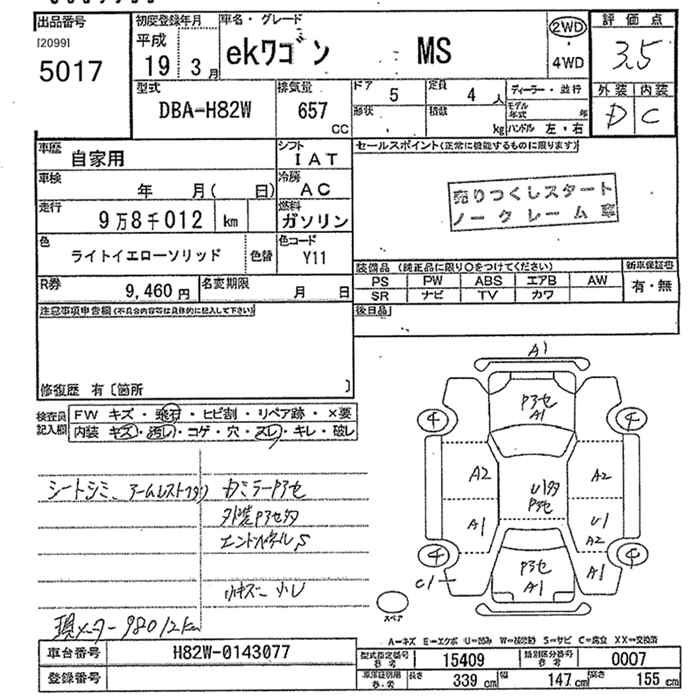 出品番号
[2099]
5017
初度登録年月
平成
19 3月
車名・グレード
ekワゴン MS
2WD
・
4WD
評価点
3.5
外装 内装
D C
型式
DBA-H82W
排気量
657
CC
ドア 5
定員 4 人
形状
積載 kg
ディーラー・並行
モデル年式 年
ハンドル 左・右
車歴 自家用
シフト IAT
車検 年 月( 日)
冷房 AC
走行 9万8千012 km
燃料 ガソリン
色 ライトイエローソリッド 色替
色コード Y11
R券 9,460円
名変期限 月 日
セールスポイント(正常に機能するものに限ります)
売りつくしスタート
ノークレーム
装備品 (純正品に限り○をつけてください)
PS PW ABS エアB AW
SR ナビ TV カワ
新車保証書
有・無
注意事項申告欄(不具合内容等は具体的に記入して下さい)
後日品
修復歴 有〔箇所 〕
検査員記入欄
FW キズ・飛石・ヒビ割・リペア跡・×要
内装 キズ・汚れ・コゲ・穴・スレ・キレ・破レ
シートシミ
カミラーアセ
外装
エンドパネルS
現メーター98012km
A1
アセ
A1
4 4
A2 A2
A1 U1
A2
4 4
C1
アセ
A1
A1
スペア
A=キズ E=エクボ U=凹み W=補修跡 S=サビ C=腐食 XX=交換済
車台番号 H82W-0143077
登録番号
型式指定番号 参考 15409
類別区分番号 参考 0007
車庫証明用 参考
長さ 339 cm
幅 147 cm
高さ 155 cm